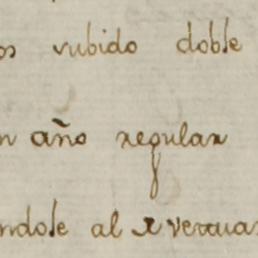 os rubido doble
n año regular
ndole al